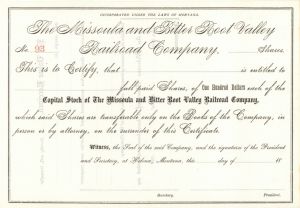 INCORPORATED UNDER THE LAWS OF MONTANA.
The Missoula and Bitter Root Valley
No. 93 Railroad Company. Shares.
This is to Certify, that is entitled to
full paid Shares, of One Hundred Dollars each of the
Capital Stock of The Missoula and Bitter Root Valley Railroad Company,
which said Shares are transferable only on the Books of the Company, in
person or by attorney, on the surrender of this Certificate.
Witness, the Seal of the said Company, and the signature of the President
and Secretary, at Helena, Montana, this day of 18
Secretary. President.